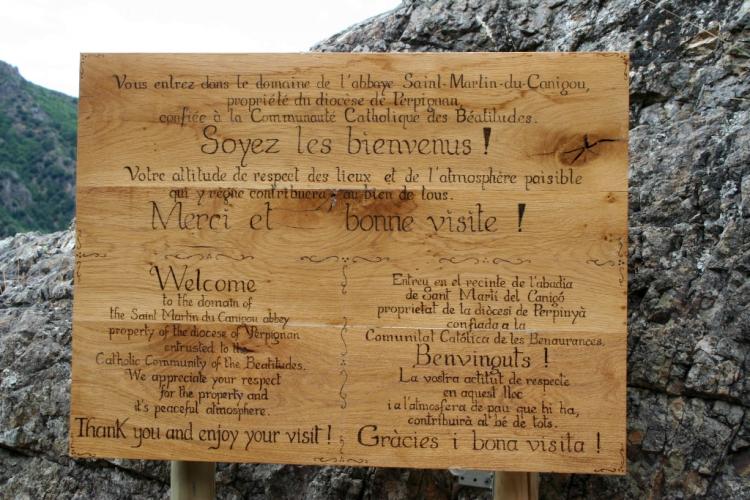 Vous entrez dans le domaine de l'abbaye Saint-Martin-du-Canigou,
propriété du diocèse de Perpignan,
confiée à la Communauté Catholique des Béatitudes.
Soyez les bienvenus !
Votre attitude de respect des lieux et de l'atmosphère paisible
qui y règne contribuera au bien de tous.
Merci et bonne visite !
Welcome
to the domain of
the Saint Martin du Canigou abbey
property of the diocese of Perpignan
entrusted to the
Catholic Community of the Beatitudes.
We appreciate your respect
for the property and
it's peaceful atmosphere.
Thank you and enjoy your visit !
Entreu en el recinte de l'abadia
de Sant Martí del Canigó
proprietat de la diòcesi de Perpinyà
confiada a la
Comunitat Catòtica de les Benaurances.
Benvinguts !
La vostra actitut de respecte
en aquest lloc
i a l'atmosfera de pau que hi ha,
contribuirà al bé de tots.
Gràcies i bona visita !